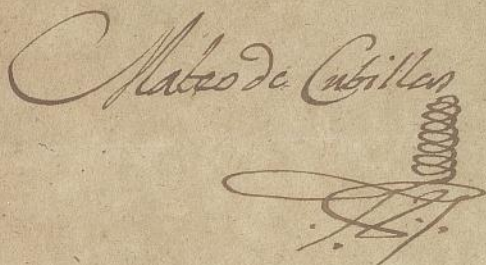 Mateo de Cubillas